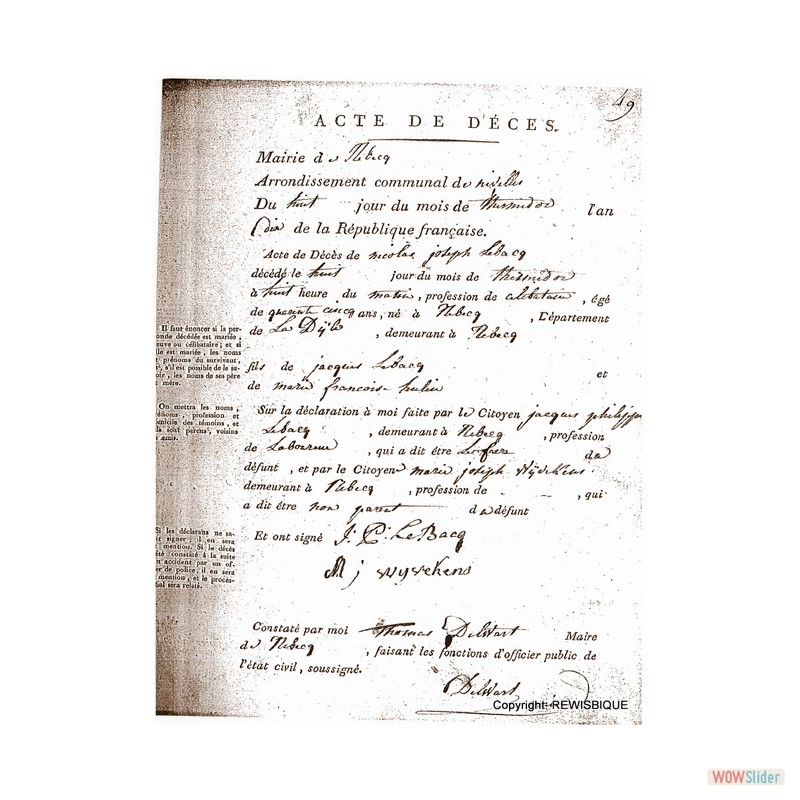 49
ACTE DE DÉCES.
Mairie de Rebecq
Arrondissement communal de nivelles
Du huit jour du mois de thermidor l'an
dix de la République française.
Acte de Décès de nicolas joseph Lebacq
décédé le huit jour du mois de thermidor
à huit heure du matin, profession de celibataire, âgé
de quarante cincq ans, né à Rebecq, Département
de La Dÿle, demeurant à Rebecq
fils de jacques Lebacq et
de marie francoise hulin
Sur la déclaration à moi faite par le Citoyen jacques philippe
Lebacq, demeurant à Rebecq, profession
de Laboureur, qui a dit être Le frere du
défunt, et par le Citoyen marie joseph Wyvekens
demeurant à Rebecq, profession de , qui
a dit être non parent du défunt
Et ont signé J. P. LeBacq
M j wyvekens
Constaté par moi Thomas Delwart Maire
de Rebecq, faisant les fonctions d'officier public de
l'état civil, soussigné.
Delwart
Il faut énoncer si la per-
onde décédée est mariée,
euve ou célibataire; et si
lle est marié, les noms
t prénoms du survivant,
, s'il est possible de le sa-
oir, les noms de ses père
t mère.
On mettra les noms,
énoms, profession et
omicile des témoins, et
ils sont parens, voisins
amis.
Si les déclarans ne sa-
t signer, il en sera
mention. Si le décès
été constaté à la suite
n accident par un of-
er de police, il en sera
mention, et le procès-
bal sera relaté.
Copyright- REWISBIQUE
WOWSlider